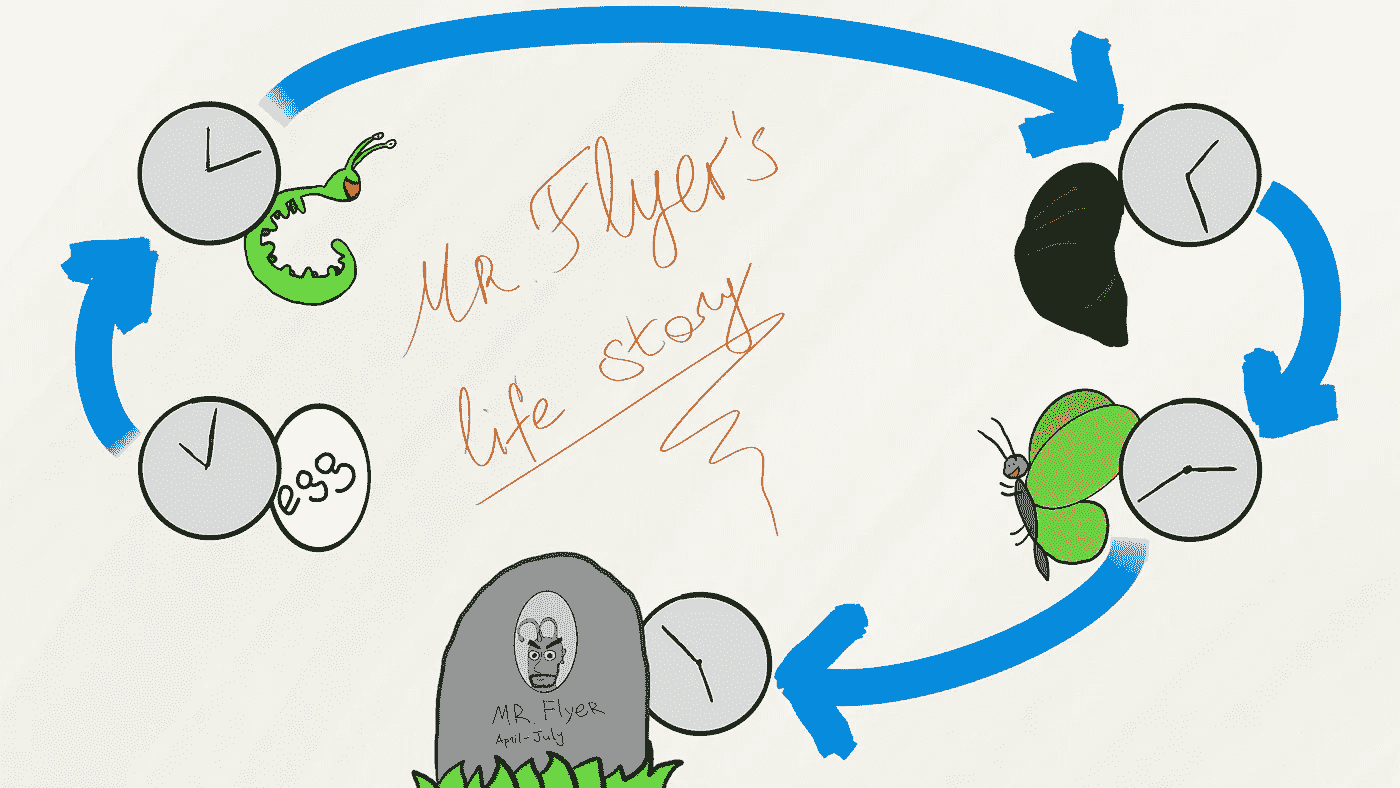 Mr. Flyer's
life story
egg
MR. Flyer
April-July